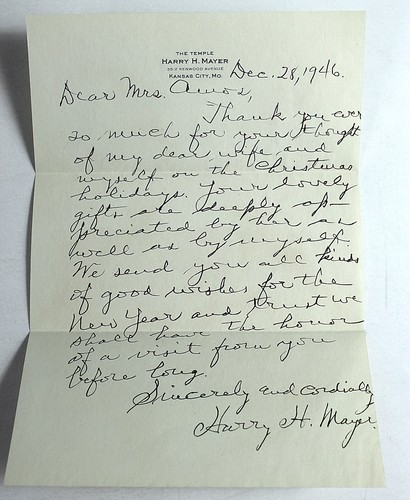 THE TEMPLE
HARRY H. MAYER
KENWOOD AVENUE
KANSAS CITY, MO.
Dec. 28, 1946.
Dear Mrs. Amos,
Thank you ever
so much for your thought
of my dear wife and
myself on the Christmas
holidays. Your lovely
gifts are deeply ap-
preciated by her as
well as by myself.
We send you all kinds
of good wishes for the
New Year and trust we
shall have the honor
of a visit from you
before long.
Sincerely and cordially
Harry H. Mayer.